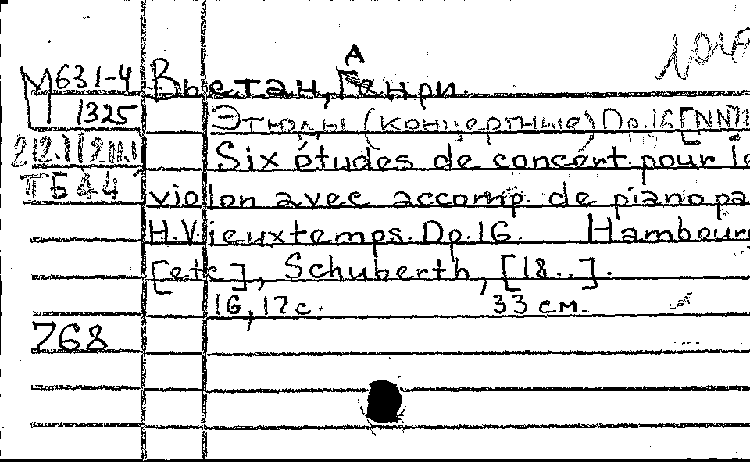 М631-4
1325
Вьетан, Генри.
А
Этюды (концертные) Op.16 [NN
Six études de concert pour le
violon avec accomp. de piano pa
H. Vieuxtemps. Op. 16. Hambour
[etc], Schuberth, [18..].
16, 17 с. 33 см.
768